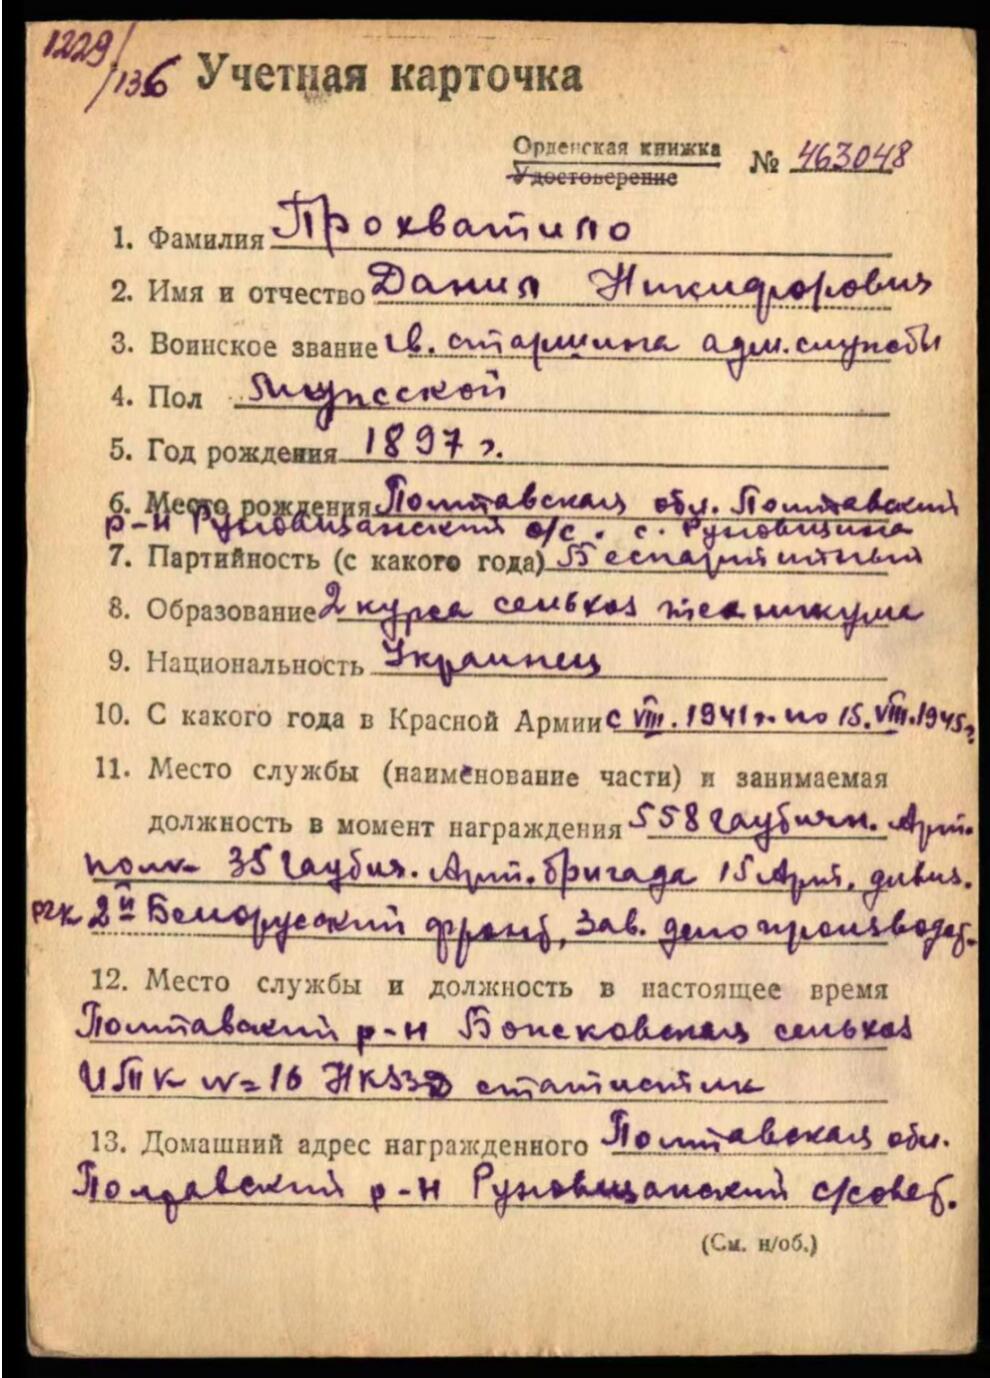 1229/136
Учетная карточка
Орденская книжка № 463048
Удостоверение
1. Фамилия Прохватило
2. Имя и отчество Данил Никифорович
3. Воинское звание гв. старшина адм. службы
4. Пол Мужской
5. Год рождения 1897 г.
6. Место рождения Полтавская обл. Полтавский
р-н Руновщанский с/с. с. Руновщина
7. Партийность (с какого года) Беспартийный
8. Образование 2 курса сельхоз техникума
9. Национальность Украинец
10. С какого года в Красной Армии с VIII. 1941 г. по 15. VIII. 1945 г.
11. Место службы (наименование части) и занимаемая
должность в момент награждения 558 гаубичн. Арт.
полк 35 гаубич. Арт. бригада 15 Арт. дивиз.
РГК 2й Белорусский фронт, Зав. делопроизводст.
12. Место службы и должность в настоящее время
Полтавский р-н сельхоз
ИТК № 16 статистик
13. Домашний адрес награжденного Полтавская обл.
Полтавский р-н Руновщанский с/совет.
(См. н/об.)